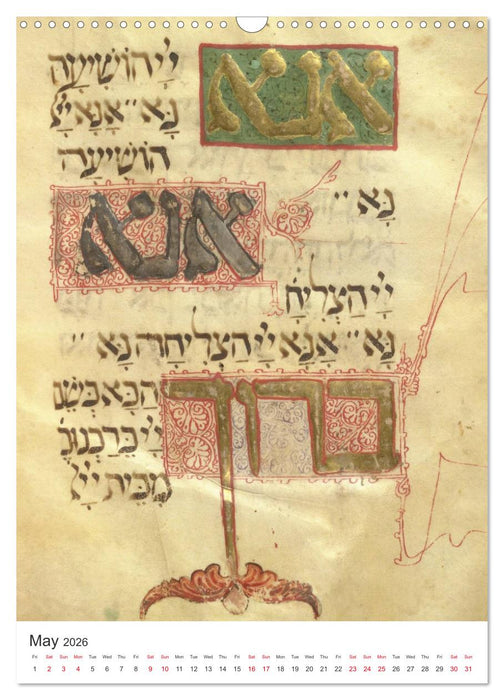 אנא יְיָ הוֹשִׁיעָה
נָּא ״ אָנָּא יְיָ
הוֹשִׁיעָה
נָּא ״
אנא
יְיָ הַצְלִיחָ
נָּא ״ אָנָּא יְיָ הַצְלִיחָה נָּא ״
ברוך הַבָּא בְּשֵׁם
יְיָ בֵּרַכְנוּכֶ
מִבֵּית יְיָ
May 2026
Fri Sat Sun Mon Tue Wed Thu Fri Sat Sun Mon Tue Wed Thu Fri Sat Sun Mon Tue Wed Thu Fri Sat Sun Mon Tue Wed Thu Fri Sat Sun
1 2 3 4 5 6 7 8 9 10 11 12 13 14 15 16 17 18 19 20 21 22 23 24 25 26 27 28 29 30 31